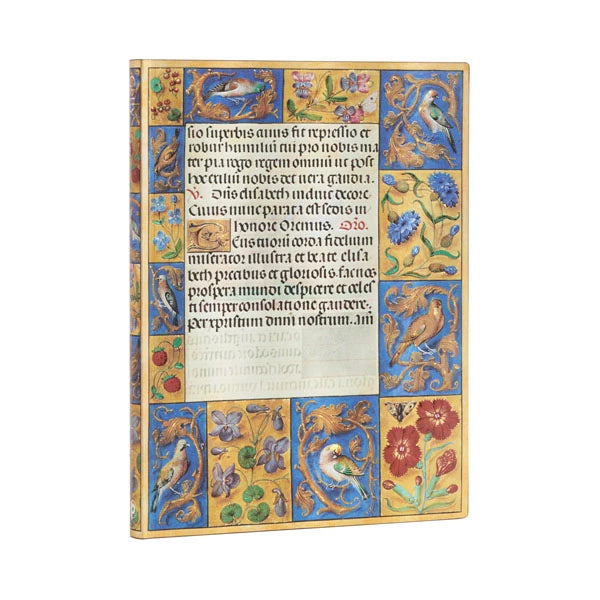 sio superbis fit repressio et
robur humiliū tui pro nobis ma
ter pia rogo regem omniū ut post
hoc exiliū nobis det vera gaudia.
V. Dn̄s elisabeth induit decore
Cuius nunc parata est sedis in
honore Oremus. Oro.
Deus tuorū corda fidelium
miserator illustra et beate elisa
beth precabus et gloriosis. fac nos
prospera mundi despicere et celes
ti semper consolatione gaudere.
Per xpristum dnm̄ nostrum. Am̄